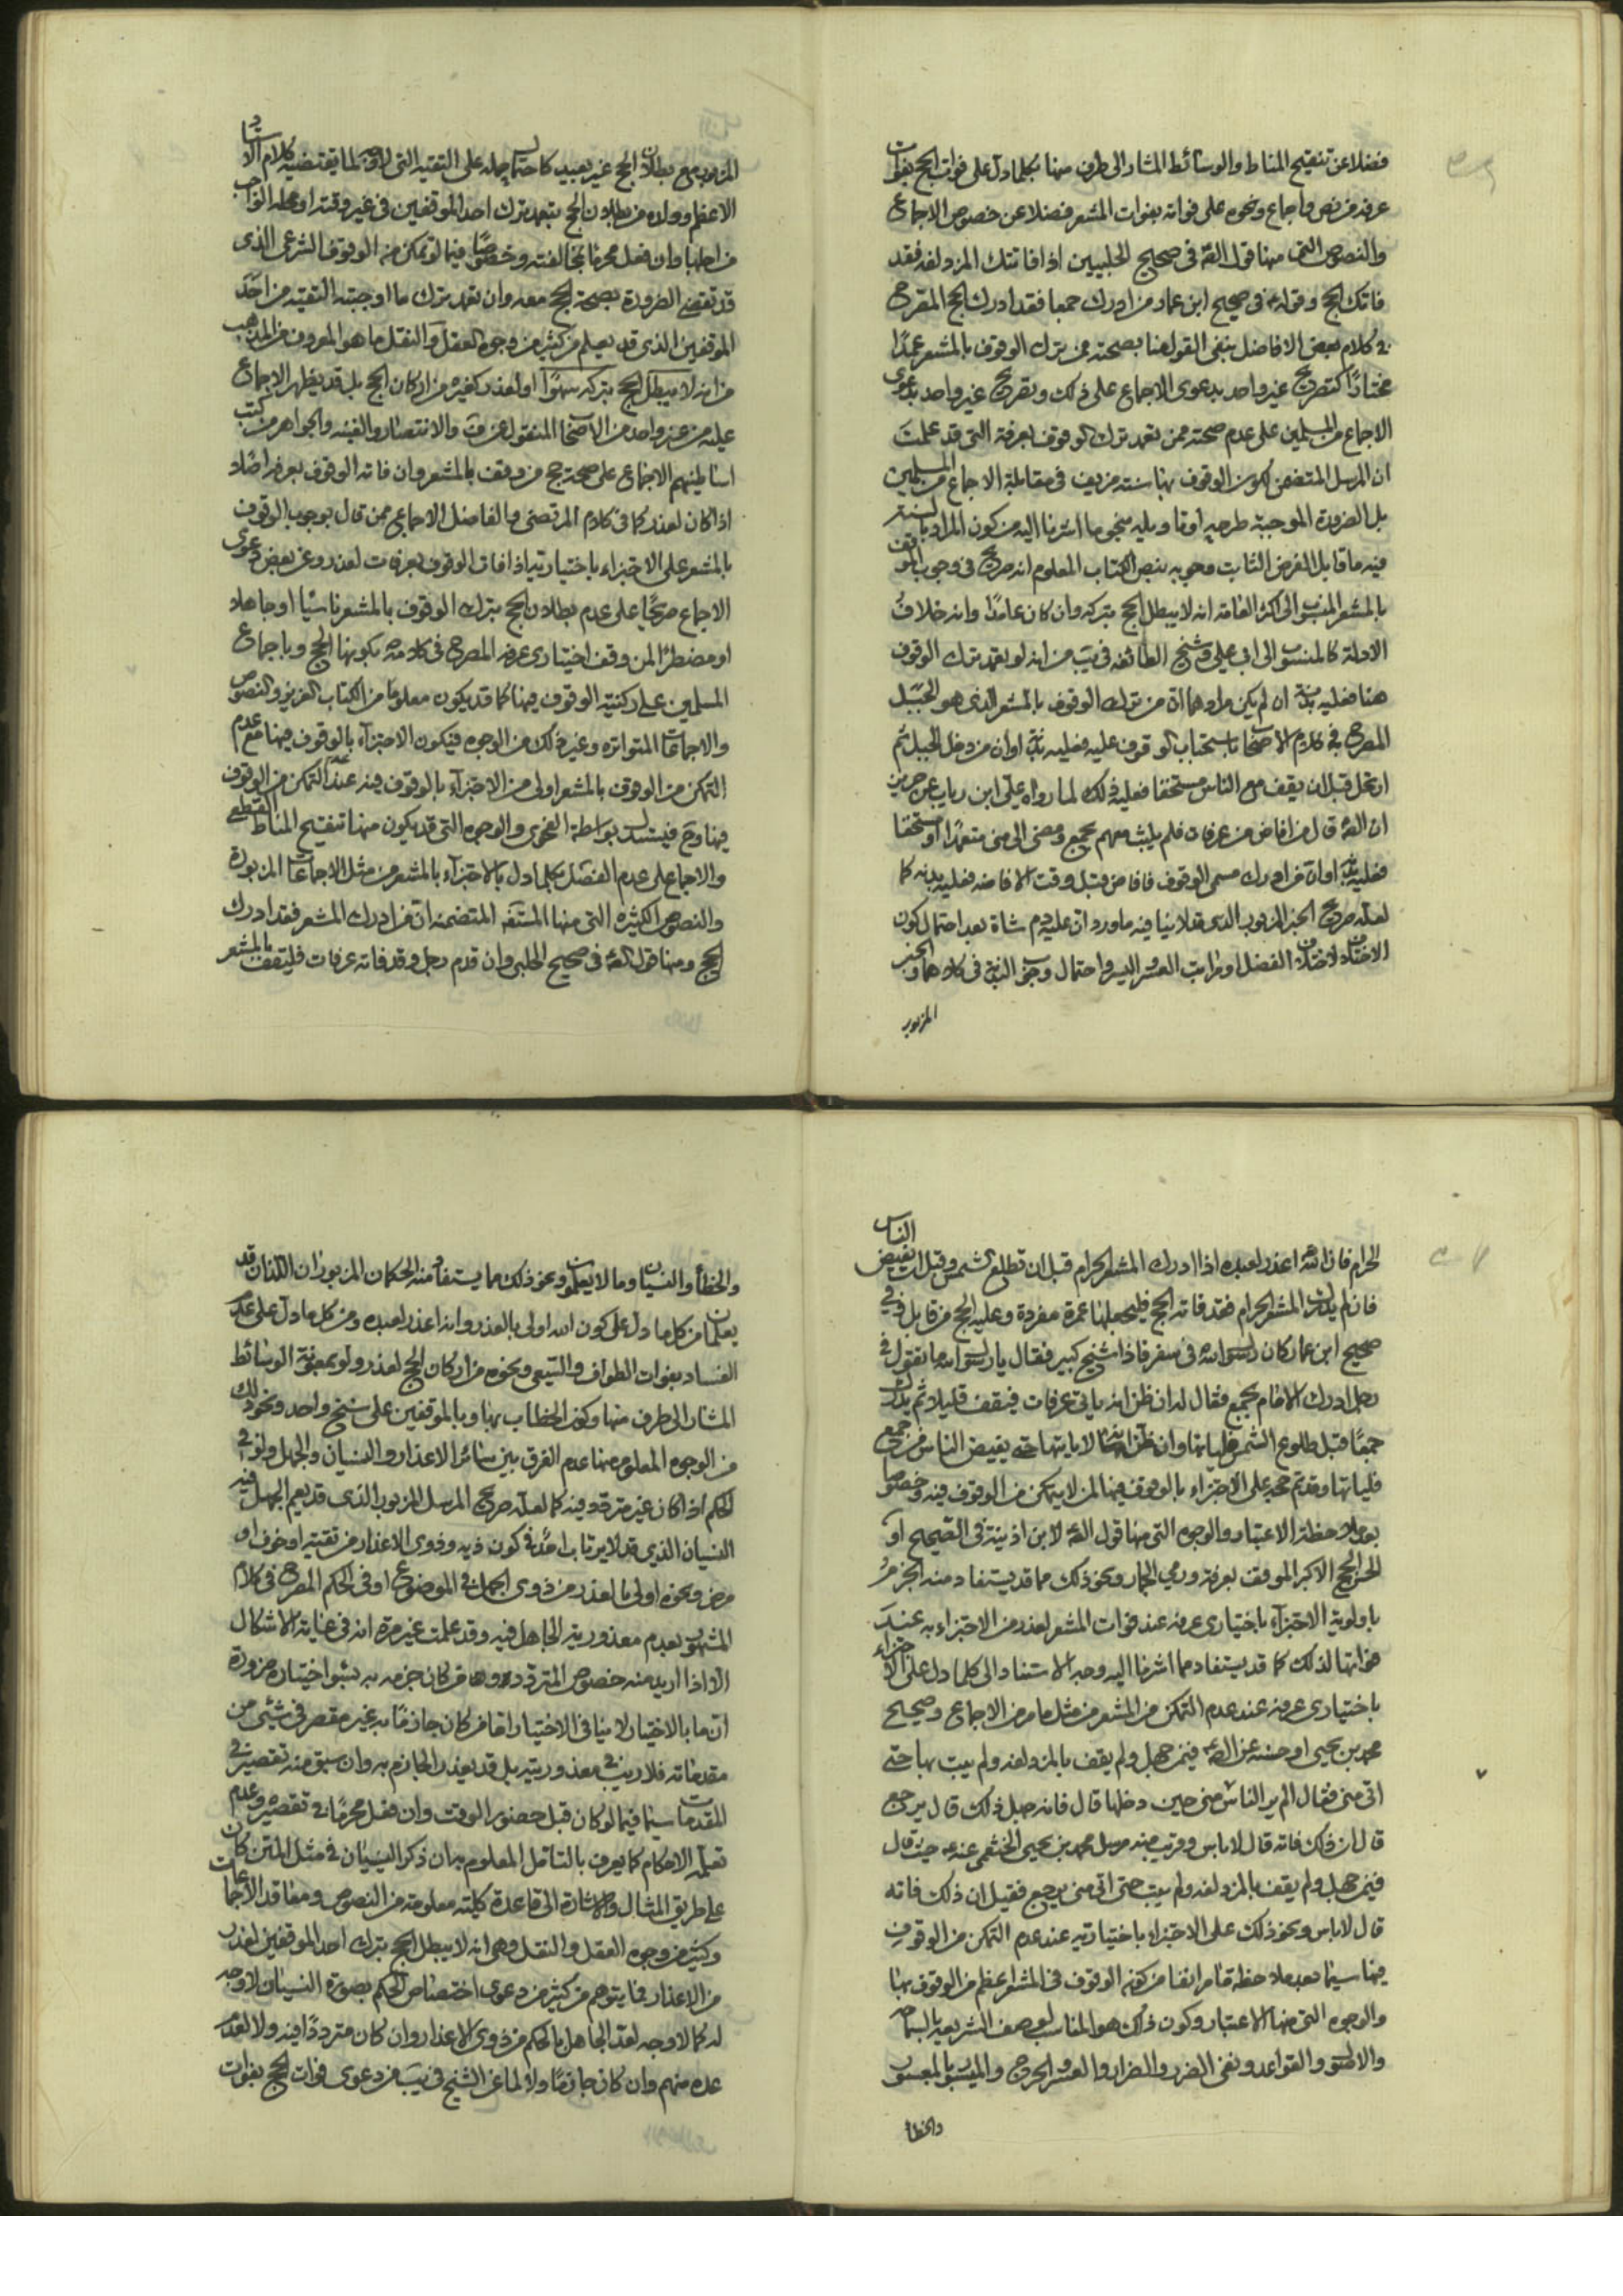 فضلا عن تنقيح المناط والوسائط المشار الى طرف منها بكلما دل على فوات الحج بفوات
عرفه من نص واجماع ونحوه على فواته بفوات المشعر فضلا عن خصوص الاجماع
والنصوص التى منها قول الصّ فى صحيح الحلبيين اذا فاتتك المزدلفه فقد
فاتك الحج وقوله فى صحيح ابن عمار من ادرك جمعا فقد ادرك الحج المصرح
فى كلام بعض الافاضل بنفى القول هنا بصحته ممن ترك الوقوف بالمشعر عمدًا
مختارًا كتصريح غير واحد بدعوى الاجماع على ذلك وتصريح غير واحد بدعوى
الاجماع من المسلمين على عدم صحته ممن تعمد ترك الوقوف بعرفة التى قد علمت
ان المرسل المتضمن لكون الوقوف بها سنته مزيف فى مقابلة الاجماع من المسلمين
بل الضرورة الموجبة طرحه او تاويله بنحو ما اشرنا اليه من كون المراد بالسنة
فيه ما قابل الفرض الثابت وجوبه بنص الكتاب المعلوم انه صريح فى وجوب الموقف
بالمشعر المنسوب الى اكثر العامه انه لا يبطل الحج بتركه وان كان عامدًا وانه خلاف
الادلة كالمنسوب الى ابى على وشيخ الطائفه فى يب من انه لو تعمد ترك الوقوف
هنا فعليه بدنة ان لم يكن مرادهما ان من ترك الوقوف بالمشعر الذى هو الجبل
المصرح فى كلام الاصحاب باستحباب الوقوف عليه فعليه بدنة او ان من دخل الجبل ثم
ارتحل قبل ان يقف مع الناس مستخفا فعليه ذلك لما رواه على ابن رياب عن حريز
ان الصّ قال من افاض من عرفات فلم يلبث معهم بجمع ومضى الى منى متعمدًا او مستخفا
فعليه بدنة او ان من ادرك مسمى الوقوف فافاض قبل وقت الافاضه فعليه بدنه كما
لعله صريح الخبر المزبور الذى قد لا ينافيه ما ورد ان عليه دم شاة بعد احتمال كون
الاختلاف لاختلاف الفضل او مراتب العسر واليسر واحتمال وجوب البدنة فى كلامهما والخبر
المزبور
المزبور مع بطلان الحج غير بعيد كاحتمال حمله على التقيه التى لا وجه لما يقتضيه كلام الاستاد
الاعظم وولده من بطلان الحج بتعمد ترك احد الموقفين فى غير وقته او محله الواجب
من اجلها وان فعل محرما بمخالفته وخصوصًا فيما لو تمكن من الوقوف الشرعى الذى
قد تقضى الضرورة بصحة الحج معه وان تعمد ترك ما اوجبته التقيه من احد
الموقفين الذى قد يعلم من كثير من وجوه العقل والنقل ما هو المعروف من المذهب
من انه لا يبطل الحج بتركه سهوًا او لعذر كغيره من اركان الحج بل قد يظهر الاجماع
عليه من غير واحد من الاصحاب المنقول عن ف والانتصار والغنيه والجواهر من كتب
اساطينهم الاجماع على صحة حج من وقف بالمشعر وان فاته الوقوف بعرفه اصلا
اذا كان لعذر كما فى كلام المرتضى والفاضل الاجماع ممن قال بوجوب الوقوف
بالمشعر على الاجتزاء باختياريته اذا فات الوقوف بعرفات لعذر وعن بعض دعوى
الاجماع صريحًا على عدم بطلان الحج بترك الوقوف بالمشعر ناسيًا او جاهلا
او مضطرًا لمن وقف اختيارى عرفه المصرح فى كلامه بكونها الحج وباجماع
المسلمين على ركنية الوقوف فيها كما قد يكون معلومًا من الكتاب العزيز والنصوص
والاجماعات المتواتره وغير ذلك من الوجوه فيكون الاجتزاء بالوقوف فيها مع عدم
التمكن من الوقوف بالمشعر اولى من الاجتزاء بالوقوف فيه عند عدم التمكن من الوقوف
فيها وح فيستدل بواسطة الفحوى والوجوه التى قد يكون منها تنقيح المناط القطعى
والاجماع على عدم الفصل بكلما دل بالاجتزاء بالمشعر من مثل الاجماعات المزبورة
والنصوص الكثيره التى منها المستفيضه المتضمنه ان من ادرك المشعر فقد ادرك
الحج ومنها قول الصّ فى صحيح الحلبى وان قدم رجل وقد فاته عرفات فليقف بالمشعر
الحرام فان الله اعذر لعبده اذا ادرك المشعر الحرام قبل ان تطلع الشمس وقبل ان يفيض الناس
فان لم يدرك المشعر الحرام فقد فاته الحج فليجعلها عمرة مفردة وعليه الحج من قابل وفى
صحيح ابن عمار كان رسول الله فى سفر فاذا شيخ كبير فقال يا رسول الله ما تقول فى
رجل ادرك الامام بجمع فقال له ان ظن انه ياتى عرفات فيقف قليلا ثم يدرك
جمعًا قبل طلوع الشمس فلياتها وان ظن انه لا ياتيها حتى يفيض الناس من جمع
فلا ياتها وقد تم حجه على الاجتزاء بالوقوف فيها لمن لا يتمكن من الوقوف فيه وخصوصا
بعد ملاحظة الاعتبار والوجوه التى منها قول الصّ لابن اذينة فى الصحيح او
الحسن الحج الاكبر الموقف بعرفة ورمى الجمار ونحو ذلك مما قد يستفاد منه الجزم
باولوية الاجتزاء باختيارى عرفه عند فوات المشعر لعذر من الاجتزاء به عند
فواتها لذلك كما قد يستفاد مما اشرنا اليه وجه الاستناد الى كلما دل على الاجتزاء
باختيارى عرفه عند عدم التمكن من المشعر من مثل ما مر من الاجماع وصحيح
محمد بن يحيى او حسنه عن الصّ فيمن جهل ولم يقف بالمزدلفه ولم يبت بها حتى
اتى منى فقال الم ير الناس منى حين دخلها قال فانه جهل ذلك قال يرجع
قال ان ذلك فاته قال لا باس وقريب منه مرسل محمد بن يحيى الخثعمى عنه حيث قال
فيمن جهل ولم يقف بالمزدلفه ولم يبت حتى اتى منى يرجع فقيل ان ذلك فاته
قال لا باس ونحو ذلك على الاجتزاء باختياريه عند عدم التمكن من الوقوف
فيها سيما بعد ملاحظة ما مر انفا من كون الوقوف فى المشعر اعظم من الوقوف بها
والوجوه التى منها الاعتبار وكون ذلك هو المناسب لوصف الشريعة بالسماحه
والاصول والقواعد ونفى الضرر والضرار والعسر والحرج والميسور بالمعسور
والخطا
والخطأ والنسيان وما لا يعلمون ونحو ذلك مما يستفاد منه الحكمان المزبوران اللذان قد
يعلمان من كل ما دل على كون الله اولى بالعذر وانه اعذر لعبده ومن كل ما دل على عدم
الفساد بفوات الطواف والسعى ونحوه من اركان الحج لعذر ولو بمعونة الوسائط
المشار الى طرف منها وكون الخطاب بها وبالموقفين على سنخ واحد ونحو ذلك
من الوجوه المعلوم منها عدم الفرق بين سائر الاعذار والنسيان والجهل ولو فى
الحكم اذا كان غير متردد فيه كما لعله صريح المرسل المزبور الذى قد يعم الجهل فيه
النسيان الذى قد لا يرتاب احد فى كون ذيه وذوى الاعذار من تقيه او خوف او
مرض ونحوه اولى بالعذر من ذوى الجهل فى الموضوع او فى الحكم المصرح فى كلام
المشهور بعدم معذورية الجاهل فيه وقد علمت غير مرة انه فى غاية الاشكال
الا اذا اريد منه خصوص المتردد دون من كان جزمه به بسوء اختياره ضرورة
ان ما بالاختيار لا ينافى الاختيار اما من كان جازمًا به غير مقصر فى شئ من
مقدماته فلا ريب فى معذوريته بل قد يعذر الجازم به وان سبق منه تقصير فى
المقدمات سيما فيما لو كان قبل حضور الوقت وان فعل محرمًا فى تقصيره وعدم
تعلمه الاحكام كما يعرف بالتامل المعلوم به ان ذكر النسيان فى مثل المتن كان
على طريق المثال والاشارة الى قاعدة كلية معلومة من النصوص ومعاقد الاجماعات
وكثير من وجوه العقل والنقل وهى انه لا يبطل الحج بترك احد الموقفين لعذر
من الاعذار فما يتوهم من كثير من دعوى اختصاص الحكم بصورة النسيان لا وجه
له كما لا وجه لعد الجاهل بالحكم من ذوى الاعذار وان كان مترددًا فيه ولا لعدم
عده منهم وان كان جازمًا ولا لما عن الشيخ فى يب من دعوى فوات الحج بفوات